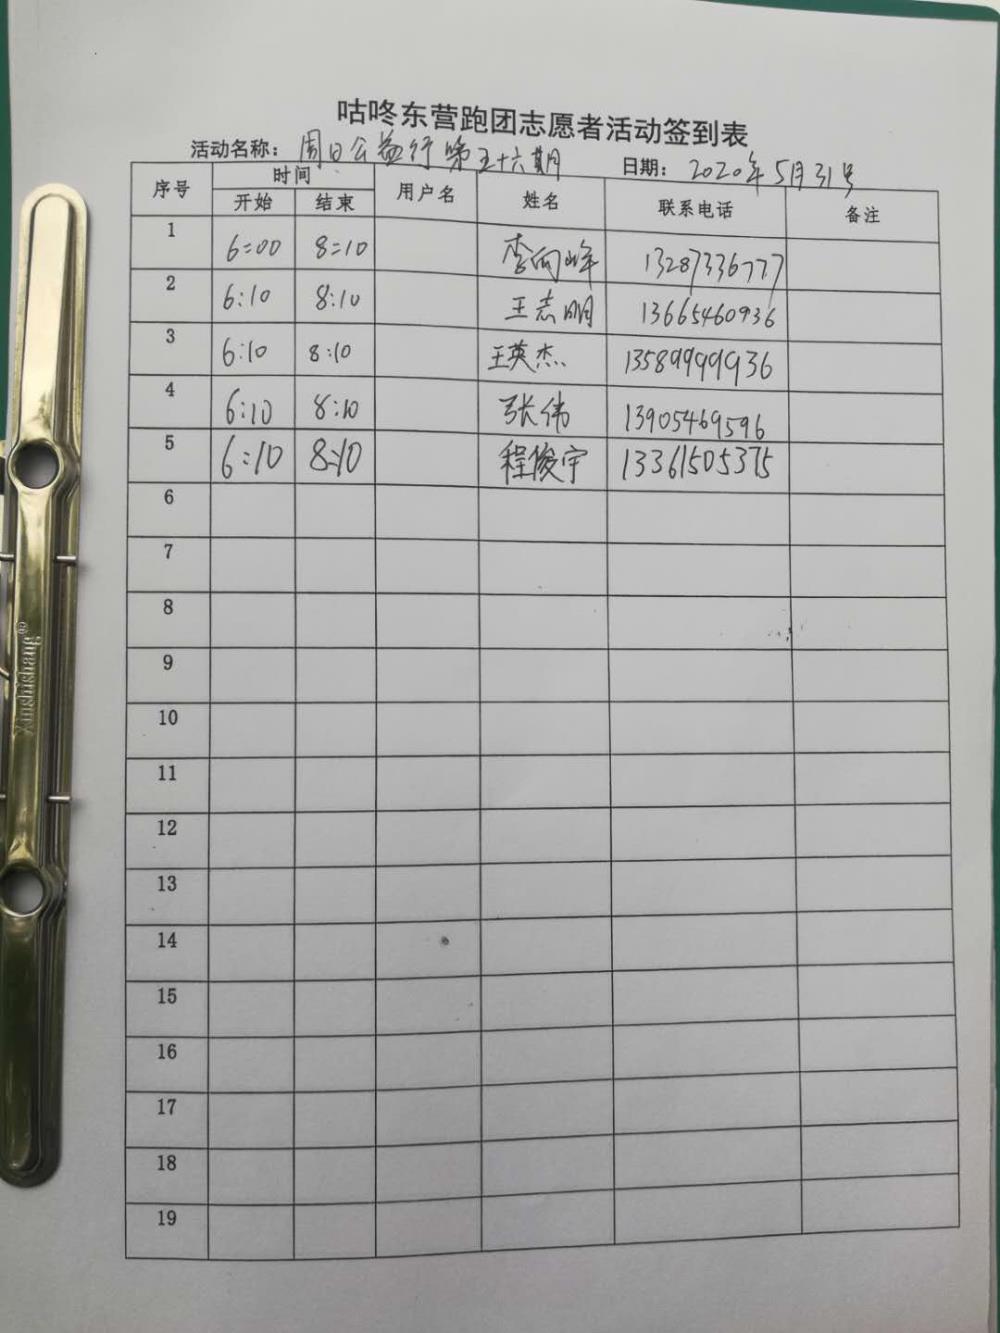 咕咚东营跑团志愿者活动签到表
活动名称： 周日公益行第五十六期 日期： 2020年5月31号
序号 时间 用户名 姓名 联系电话 备注
开始 结束
1 6:00 8:10 李向峰 13287336777
2 6:10 8:10 王志明 13665460936
3 6:10 8:10 王英杰 13589999936
4 6:10 8:10 张伟 13905469596
5 6:10 8:10 程俊宇 13361505375
6
7
8
9
10
11
12
13
14
15
16
17
18
19
Xinshishang®